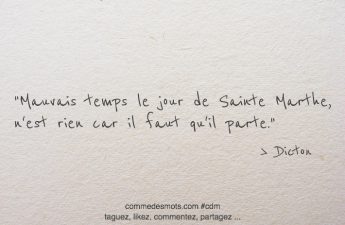 "Mauvais temps le jour de Sainte Marthe,
n'est rien car il faut qu'il parte."
> Dicton
commedesmots.com #cdm
taguez, likez, commentez, partagez ...